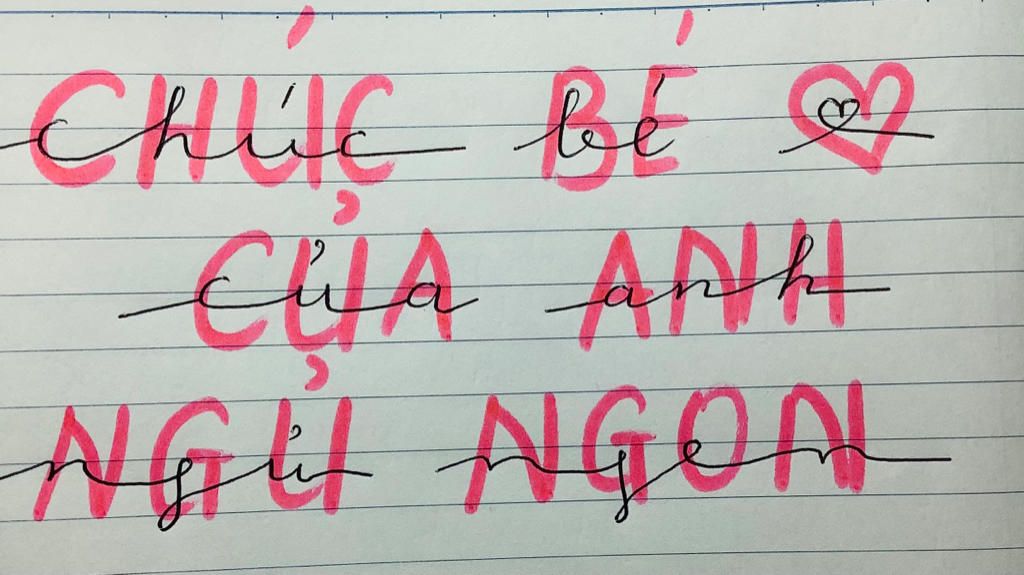 CHÚC BÉ ♡
chúc bé ♡
CỦA ANH
của anh
NGỦ NGON
ngủ ngon